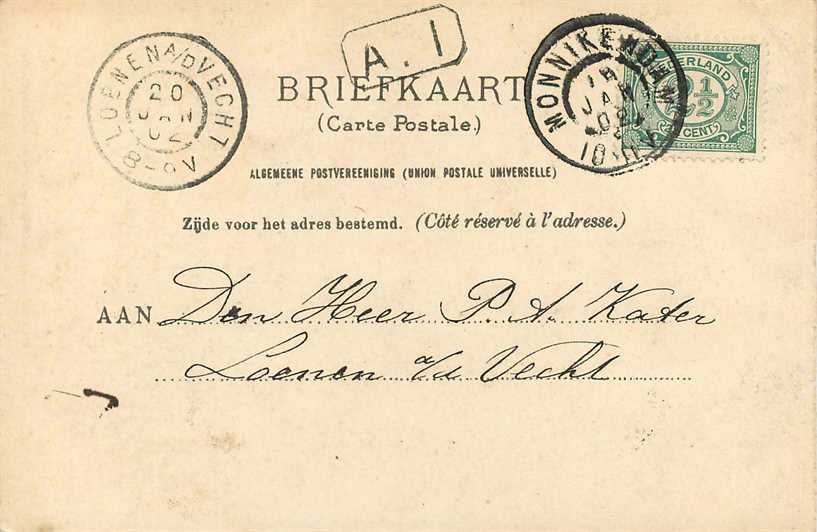 LOENEN A/D VECHT
20
JAN
02
8-9V
A. I
BRIEFKAART
(Carte Postale.)
MONNIKENDAM
JAN
NEDERLAND
2½
CENT
ALGEMEENE POSTVEREENIGING (UNION POSTALE UNIVERSELLE)
Zijde voor het adres bestemd. (Côté réservé à l'adresse.)
AAN Den Heer P. A. Kater
Loenen a/d Vecht